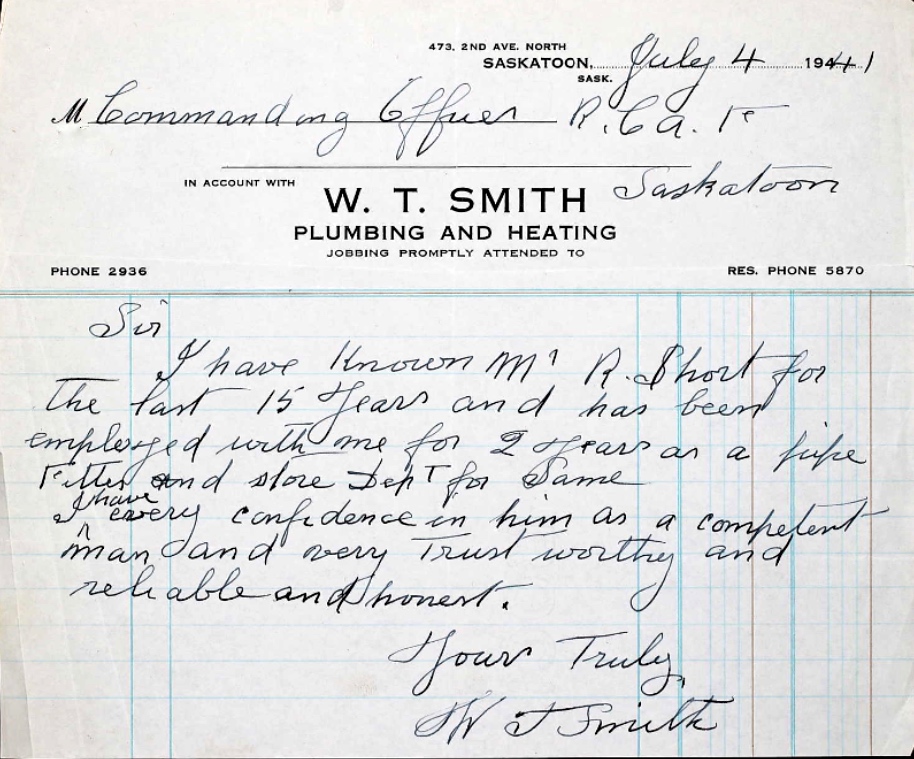 473. 2ND AVE. NORTH
SASKATOON, SASK. July 4 1941
M Commanding Officer R.C.A.F
Saskatoon
IN ACCOUNT WITH
W. T. SMITH
PLUMBING AND HEATING
JOBBING PROMPTLY ATTENDED TO
PHONE 2936 RES. PHONE 5870
Sir
I have Known Mr R. Short for
the last 15 Years and has been
employed with me for 2 Years as a pipe
Fitter and store Dept for Same
I have every confidence in him as a competent
man and very Trust worthy and
reliable and honest.
Yours Truly,
W T Smith